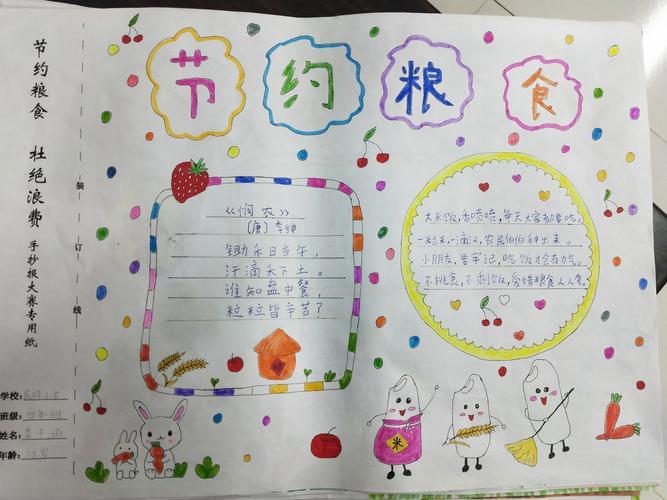 节约粮食
节约粮食 杜绝浪费 手抄报大赛专用纸
装订线
学校：
班级：
姓名：
年龄：
《悯农》
(唐) 李绅
锄禾日当午，
汗滴禾下土。
谁知盘中餐，
粒粒皆辛苦？
大米饭，香喷喷，每天大家都要吃。
一粒米，一滴汗，农民伯伯种出来。
小朋友，要牢记，吃饭才会有力气。
不挑食，不剩饭，爱惜粮食人人夸。
米